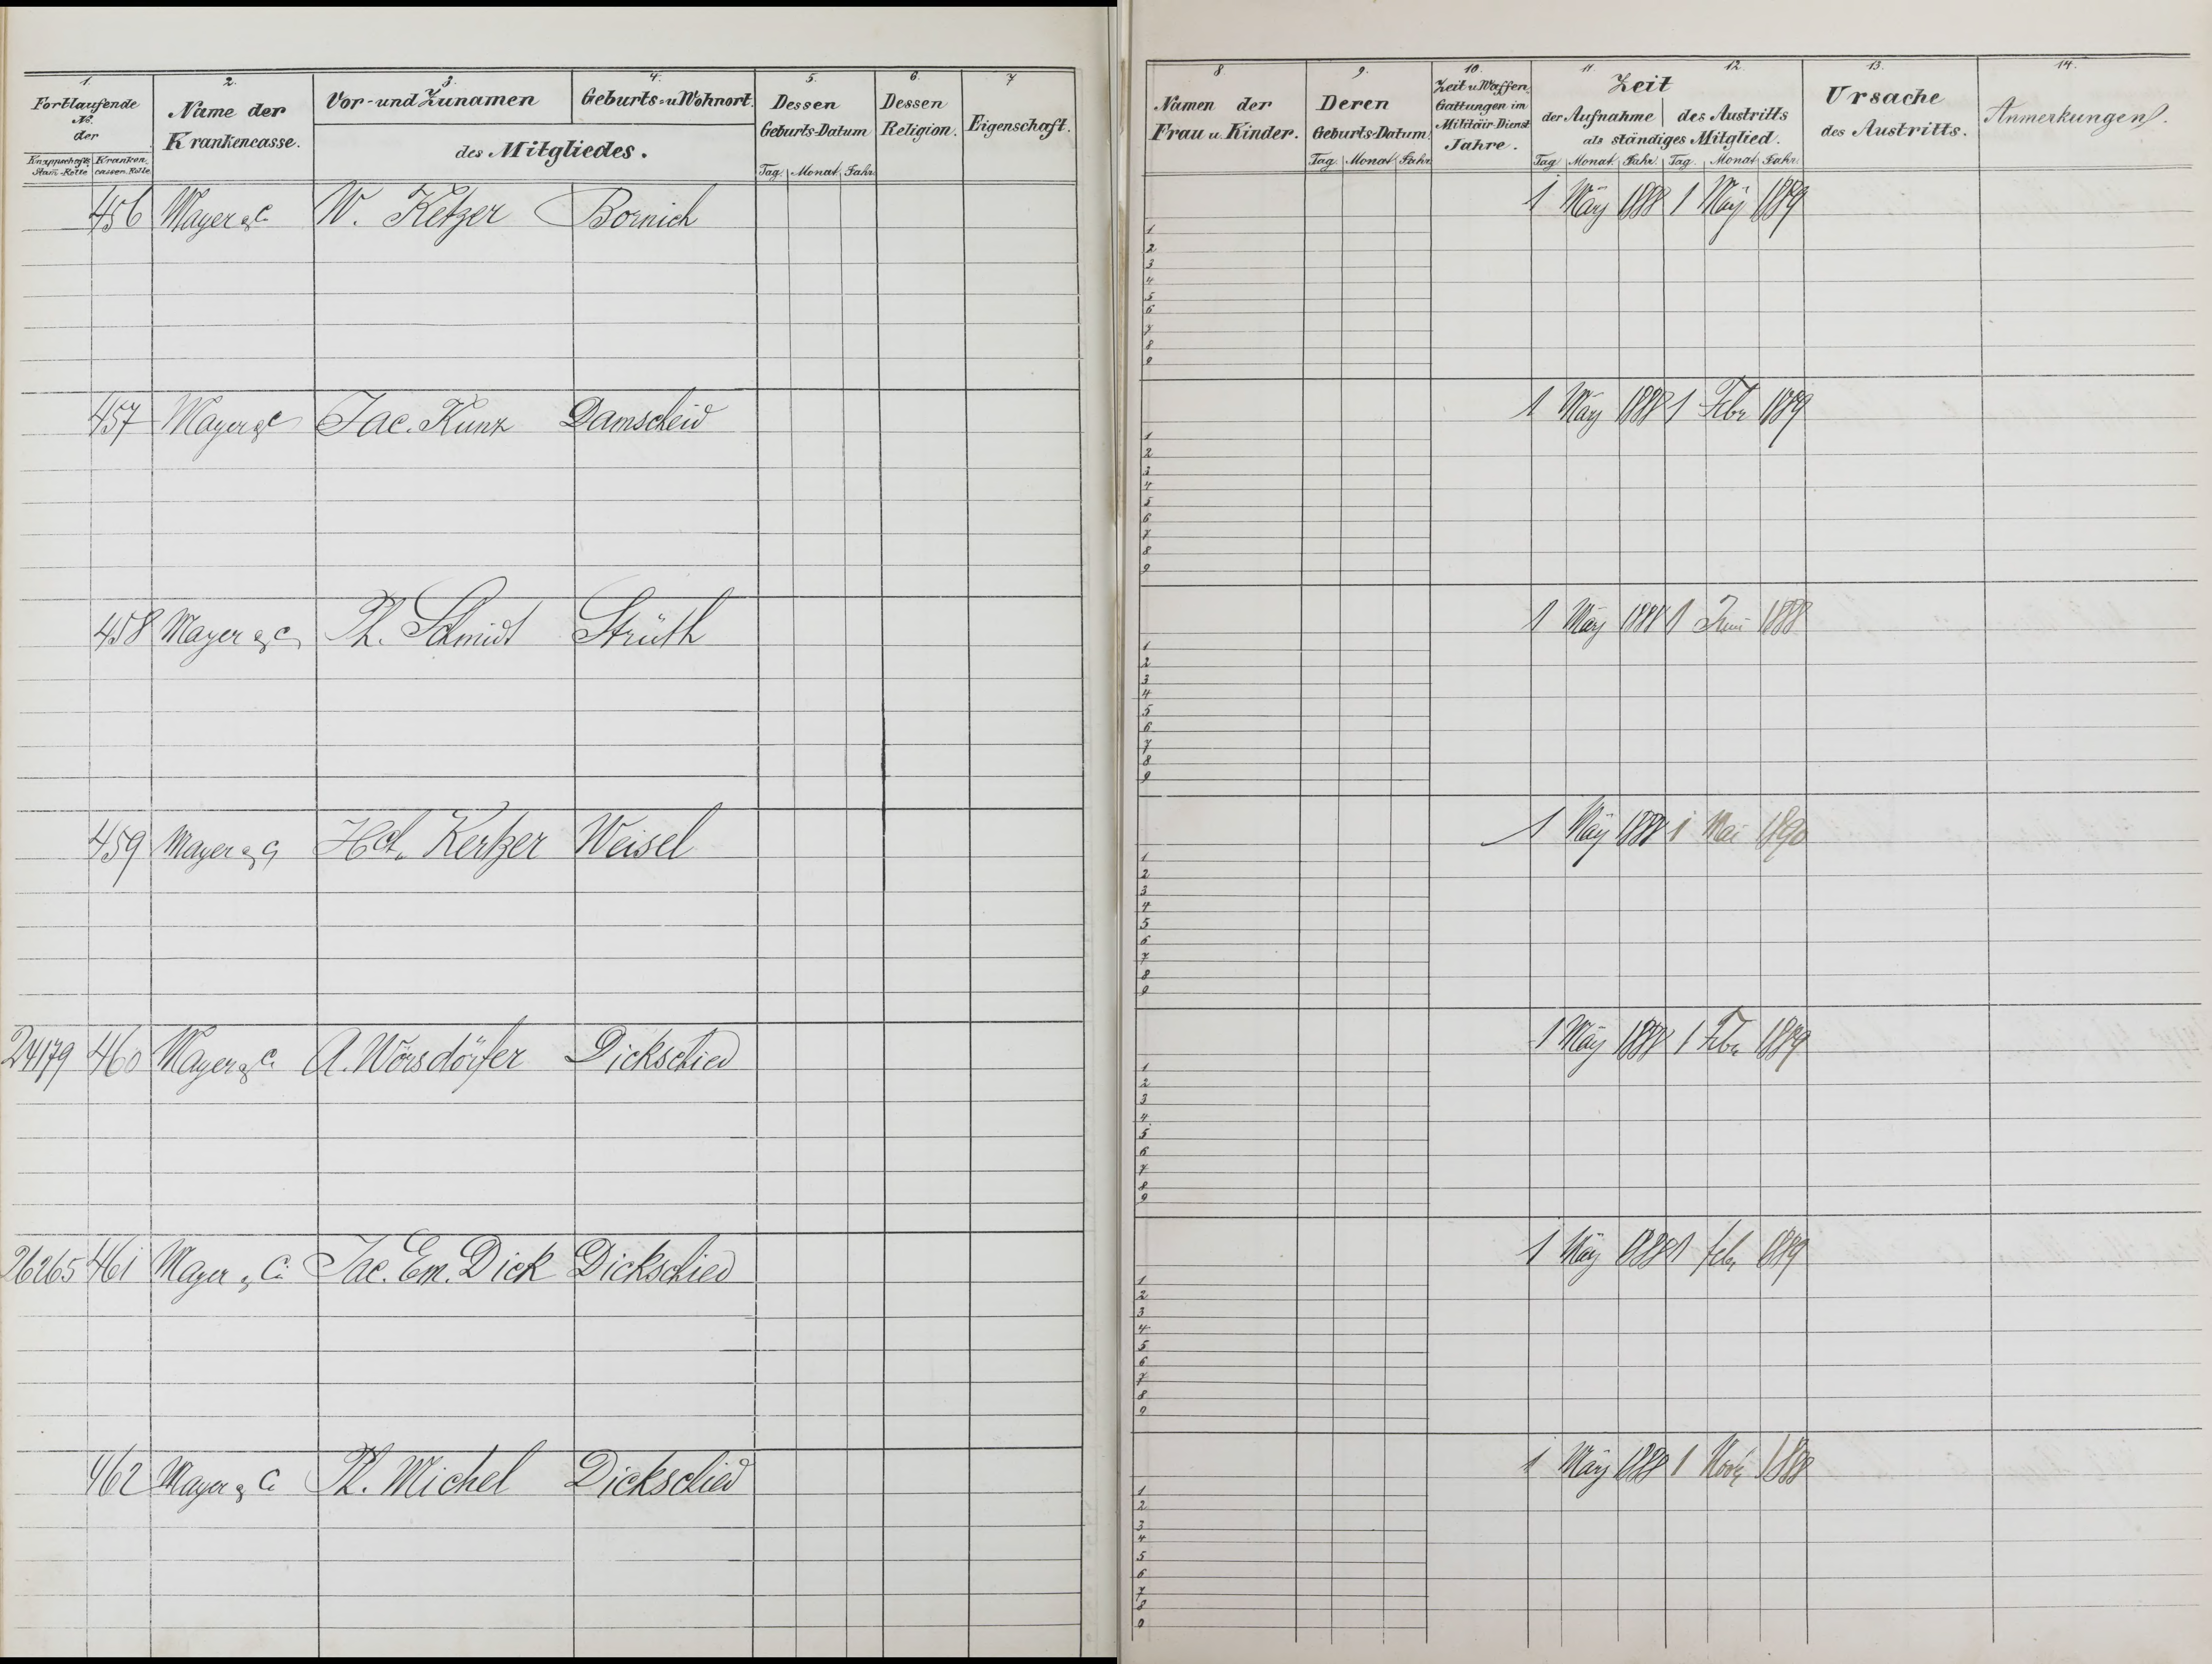 1. 2. 3. 4. 5. 6. 7
Fortlaufende No. der
Knappschafts Stam-Rolle Kranken-cassen-Rolle
Name der Krankencasse.
Vor- und Zunamen Geburts- u Wohnort.
des Mitgliedes.
Dessen Geburts-Datum
Tag Monat Jahr
Dessen Religion.
Eigenschaft.
456 Mayer & C W. Ketzer Bornich
457 Mayer & C Jac. Kunz Damscheid
458 Mayer & C Ph. Schmidt Strüth
459 Mayer & C Hch. Kertzer Weisel
24179 460 Mayer & C. A. Wörsdörfer Dickschied
26265 461 Mayer & C. Jac. Em. Dick Dickschied
462 Mayer & C. Ph. Michel Dickschied
8 9. 10. 11. 12. 13. 14.
Namen der Frau u. Kinder.
Deren Geburts-Datum
Tag Monat Jahr
Zeit u Waffen Gattungen im Militair-Dienst Jahre.
Zeit
der Aufnahme des Austritts
als ständiges Mitglied.
Tag Monat Jahr Tag Monat Jahr
Ursache des Austritts.
Anmerkungen.
1 März 1888 1 März 1889
1
2
3
4
5
6
7
8
9
1 März 1888 1 Febr 1889
1
2
3
4
5
6
7
8
9
1 März 1888 1 Juni 1888
1
2
3
4
5
6
7
8
9
1 März 1888 1 Mai 1890
1
2
3
4
5
6
7
8
9
1 März 1888 1 Febr 1889
1
2
3
4
5
6
7
8
9
1 März 1888 1 febr 1889
1
2
3
4
5
6
7
8
9
1 März 1888 1 Novb 1888
1
2
3
4
5
6
7
8
9